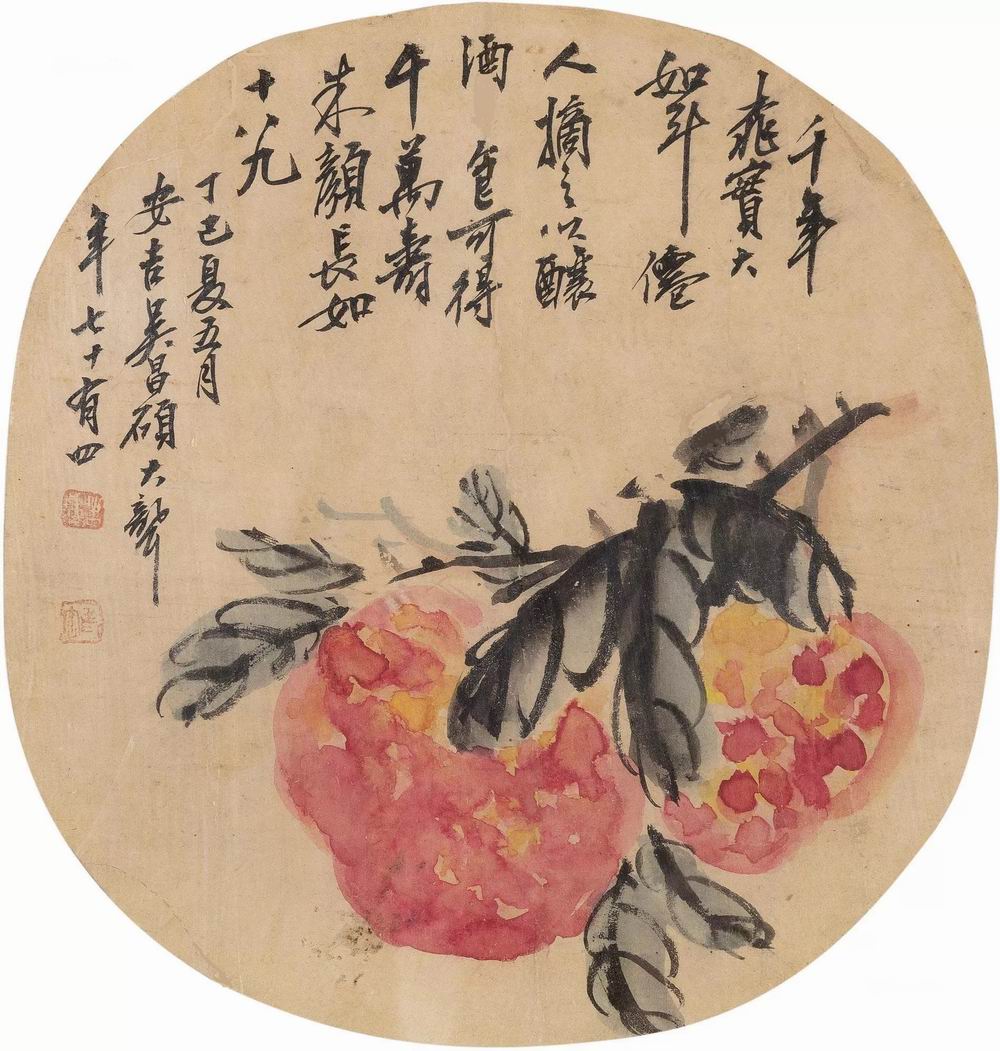 千年
桃實大
如斗僊
人摘之以釀
酒食可得
千萬壽
朱顏長如
十八九
丁巳夏五月
安吉吳昌碩大聾
年七十有四